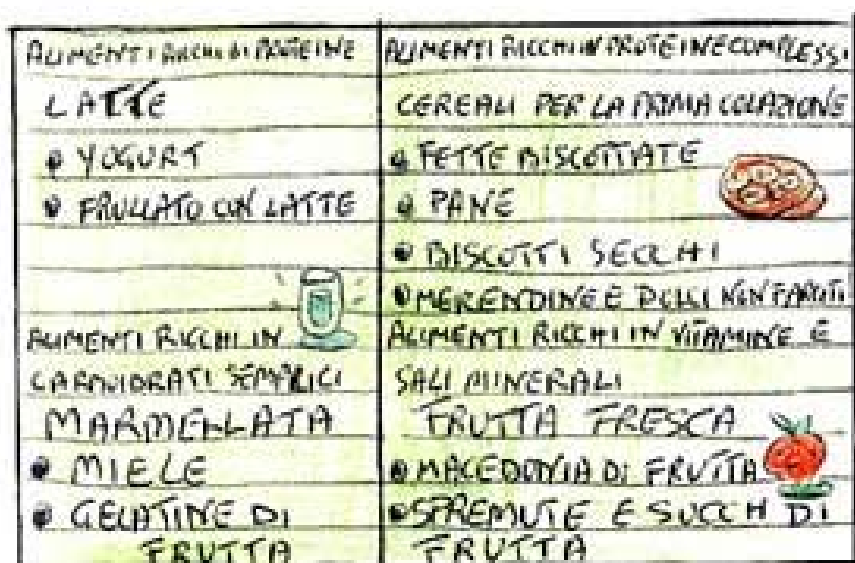 ALIMENTI RICCHI DI PROTEINE
LATTE
• YOGURT
• FRULLATO CON LATTE
ALIMENTI RICCHI IN
CARBOIDRATI SEMPLICI
MARMELLATA
• MIELE
• GELATINE DI
FRUTTA
ALIMENTI RICCHI IN PROTEINE COMPLESSI
CEREALI PER LA PRIMA COLAZIONE
• FETTE BISCOTTATE
• PANE
• BISCOTTI SECCHI
• MERENDINE E DOLCI NON FARCITI
ALIMENTI RICCHI IN VITAMINE E
SALI MINERALI
FRUTTA FRESCA
• MACEDONIA DI FRUTTA
• SPREMUTE E SUCCHI DI
FRUTTA